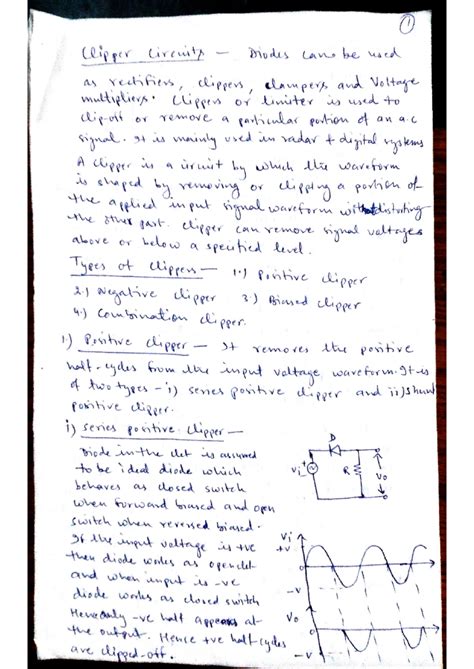 1
Clipper Circuits — Diodes can be used
as rectifiers, clippers, clampers and Voltage
multipliers. Clippers or limiter is used to
clip-off or remove a particular portion of an a.c
signal. It is mainly used in radar + digital systems
A clipper is a circuit by which the waveform
is shaped by removing or clipping a portion of
the applied input signal waveform without distorting
the other part. Clipper can remove signal voltages
above or below a specified level.
Types of Clippers — 1.) Positive clipper
2.) Negative clipper 3.) Biased clipper
4.) Combination clipper.
1.) Positive clipper — It removes the positive
half-cycles from the input voltage waveform. It is
of two types - i) series positive clipper and ii) Shunt
positive clipper.
i) Series positive clipper —
Diode in the ckt is assumed
to be ideal diode which
behaves as closed switch
when forward biased and open
switch when reversed biased.
If the input voltage is +ve
then diode works as open ckt
and when input is -ve
diode works as closed switch
Hence only -ve half appears at
the output. Hence +ve half-cycles
are clipped-off.
D
Vi
+
R
Vo
Vi
+V
0
-V
Vo
0
-V